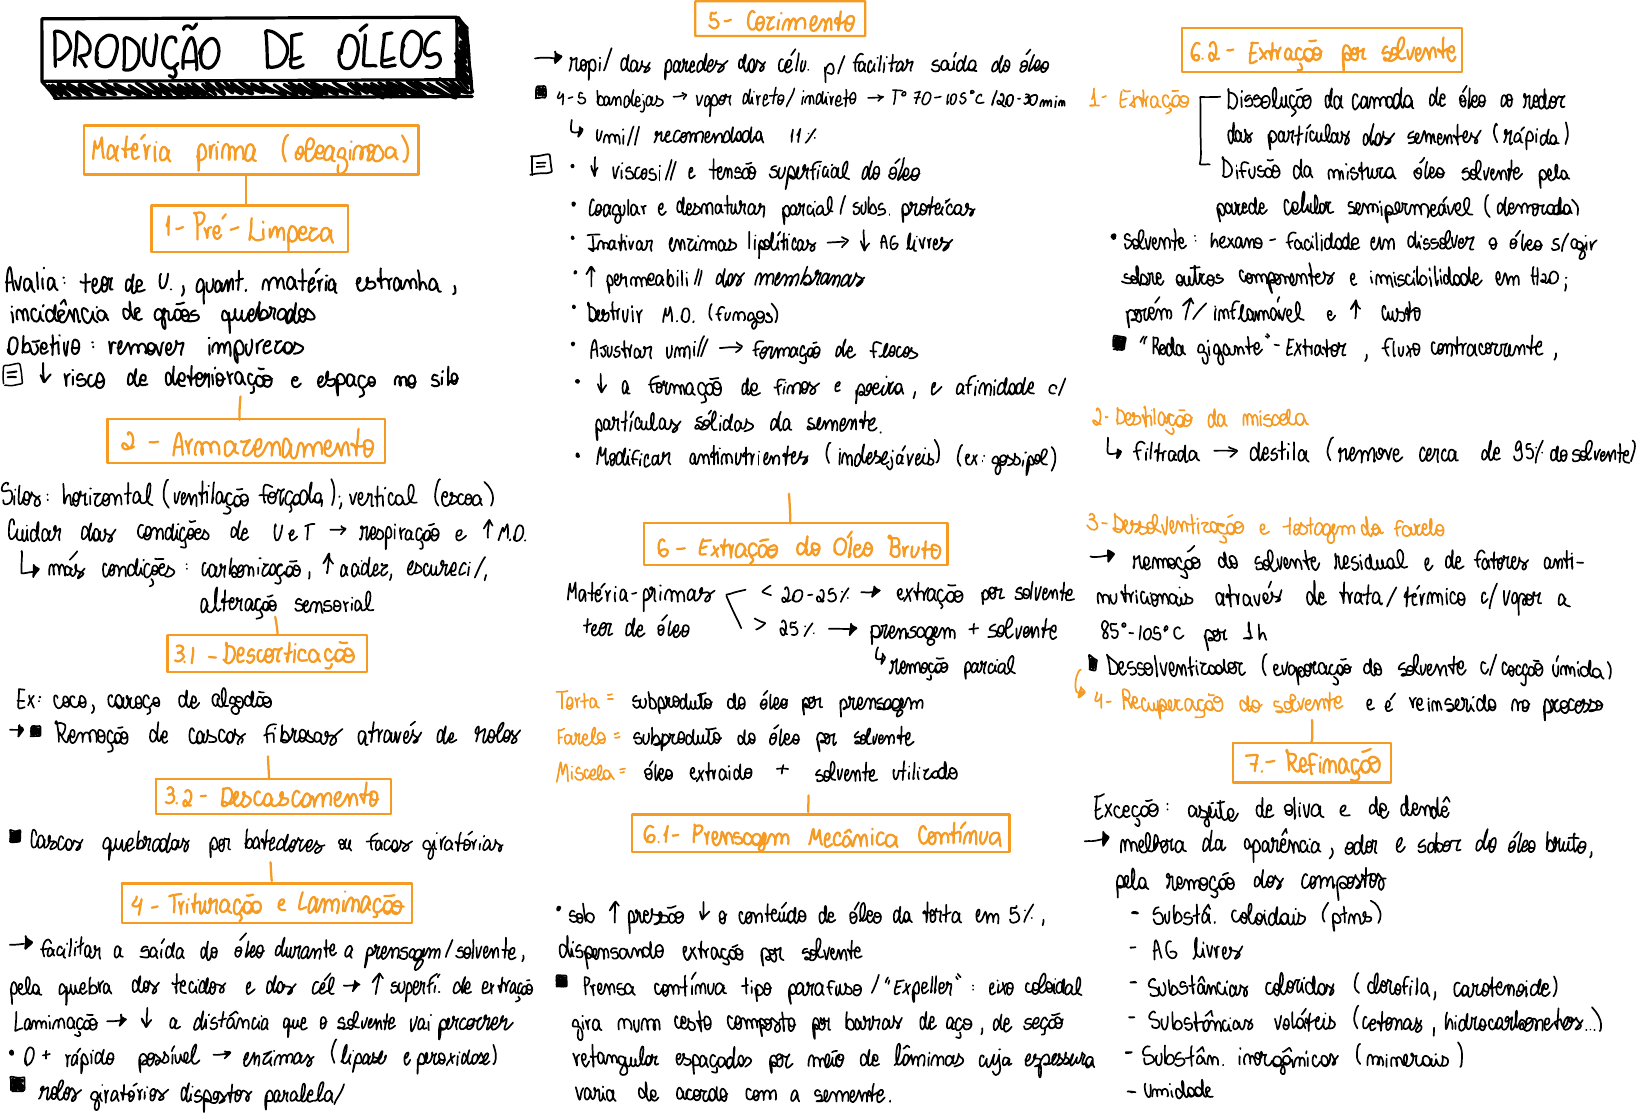 PRODUÇÃO DE ÓLEOS
Matéria prima (oleaginosa)
1- Pré-Limpeza
Avalia: teor de U., quant. matéria estranha,
incidência de grãos quebrados
Objetivo: remover impurezas
↓ risco de deterioração e espaço no silo
2 - Armazenamento
Silos: horizontal (ventilação forçada); vertical (escoa)
Cuidar das condições de U e T → respiração e ↑ M.O.
↳ más condições: carbonização, ↑ acidez, escureci/,
alteração sensorial
3.1 - Descorticação
Ex: coco, caroço de algodão
→ ■ Remoção de cascas fibrosas através de rolos
3.2 - Descascamento
■ Cascas quebradas por batedores ou facas giratórias
4 - Trituração e Laminação
→ facilitar a saída do óleo durante a prensagem/solvente,
pela quebra dos tecidos e das cél → ↑ superfí. de extração
Laminação → ↓ a distância que o solvente vai percorrer
• O + rápido possível → enzimas (lipase e peroxidase)
■ rolos giratórios dispostos paralela/
5 - Cozimento
→ ropi/ das paredes das célu. p/ facilitar saída do óleo
■ 4-5 bandejas → vapor direto/indireto → T° 70-105°C /20-30min
↳ umi// recomendada 11%
• ↓ viscosi// e tensão superficial do óleo
• Coagular e desnaturar parcial/ subs. proteícas
• Inativar enzimas lipolíticas → ↓ AG livres
• ↑ permeabili// das membranas
• Destruir M.O. (fungos)
• Ajustrar umi// → formação de flocos
• ↓ a formação de finos e poeira, e afinidade c/
partículas sólidas da semente.
• Modificar antinutrientes (indesejáveis) (ex: gossipol)
6 - Extração do Óleo Bruto
Matéria-primas < 20-25% → extração por solvente
teor de óleo > 25% → prensagem + solvente
↳ remoção parcial
Torta = subproduto do óleo por prensagem
Farelo = subproduto do óleo por solvente
Miscela = óleo extraido + solvente utilizado
6.1- Prensagem Mecânica Contínua
• sob ↑ pressão ↓ o conteúdo de óleo da torta em 5%,
dispensando extração por solvente
■ Prensa contínua tipo parafuso / "Expeller": eixo coloidal
gira num cesto composto por barras de aço, de seção
retangular espaçadas por meio de lâminas cuja espessura
varia de acordo com a semente.
6.2 - Extração por solvente
1- Extração Dissolução da camada de óleo ao redor
das partículas das sementes (rápida)
Difusão da mistura óleo solvente pela
parede celular semipermeável (demorada)
• Solvente: hexano - facilidade em dissolver o óleo s/agir
sobre outros componentes e imiscibilidade em H2O;
porém ↑/ inflamável e ↑ custo
■ "Roda gigante" - Extrator, fluxo contracorrente,
2- Destilação da miscela
↳ filtrada → destila (remove cerca de 95% do solvente)
3- Dessolventização e tostagem do farelo
→ remoção do solvente residual e de fatores anti-
nutricionais através de trata/ térmico c/ vapor a
85°-105°C por 1h
■ Dessolventizador (evaporação do solvente c/ cocção úmida)
4- Recuperação do solvente e é reinserido no processo
7.- Refinação
Exceção: azeite de oliva e de dendê
→ melhora da aparência, odor e sabor do óleo bruto,
pela remoção dos compostos
- Substâ. coloidais (ptns)
- AG livres
- Substâncias coloridas (clorofila, carotenoide)
- Substâncias voláteis (cetonas, hidrocarbonetos...)
- Substân. inorgânicas (minerais)
- Umidade